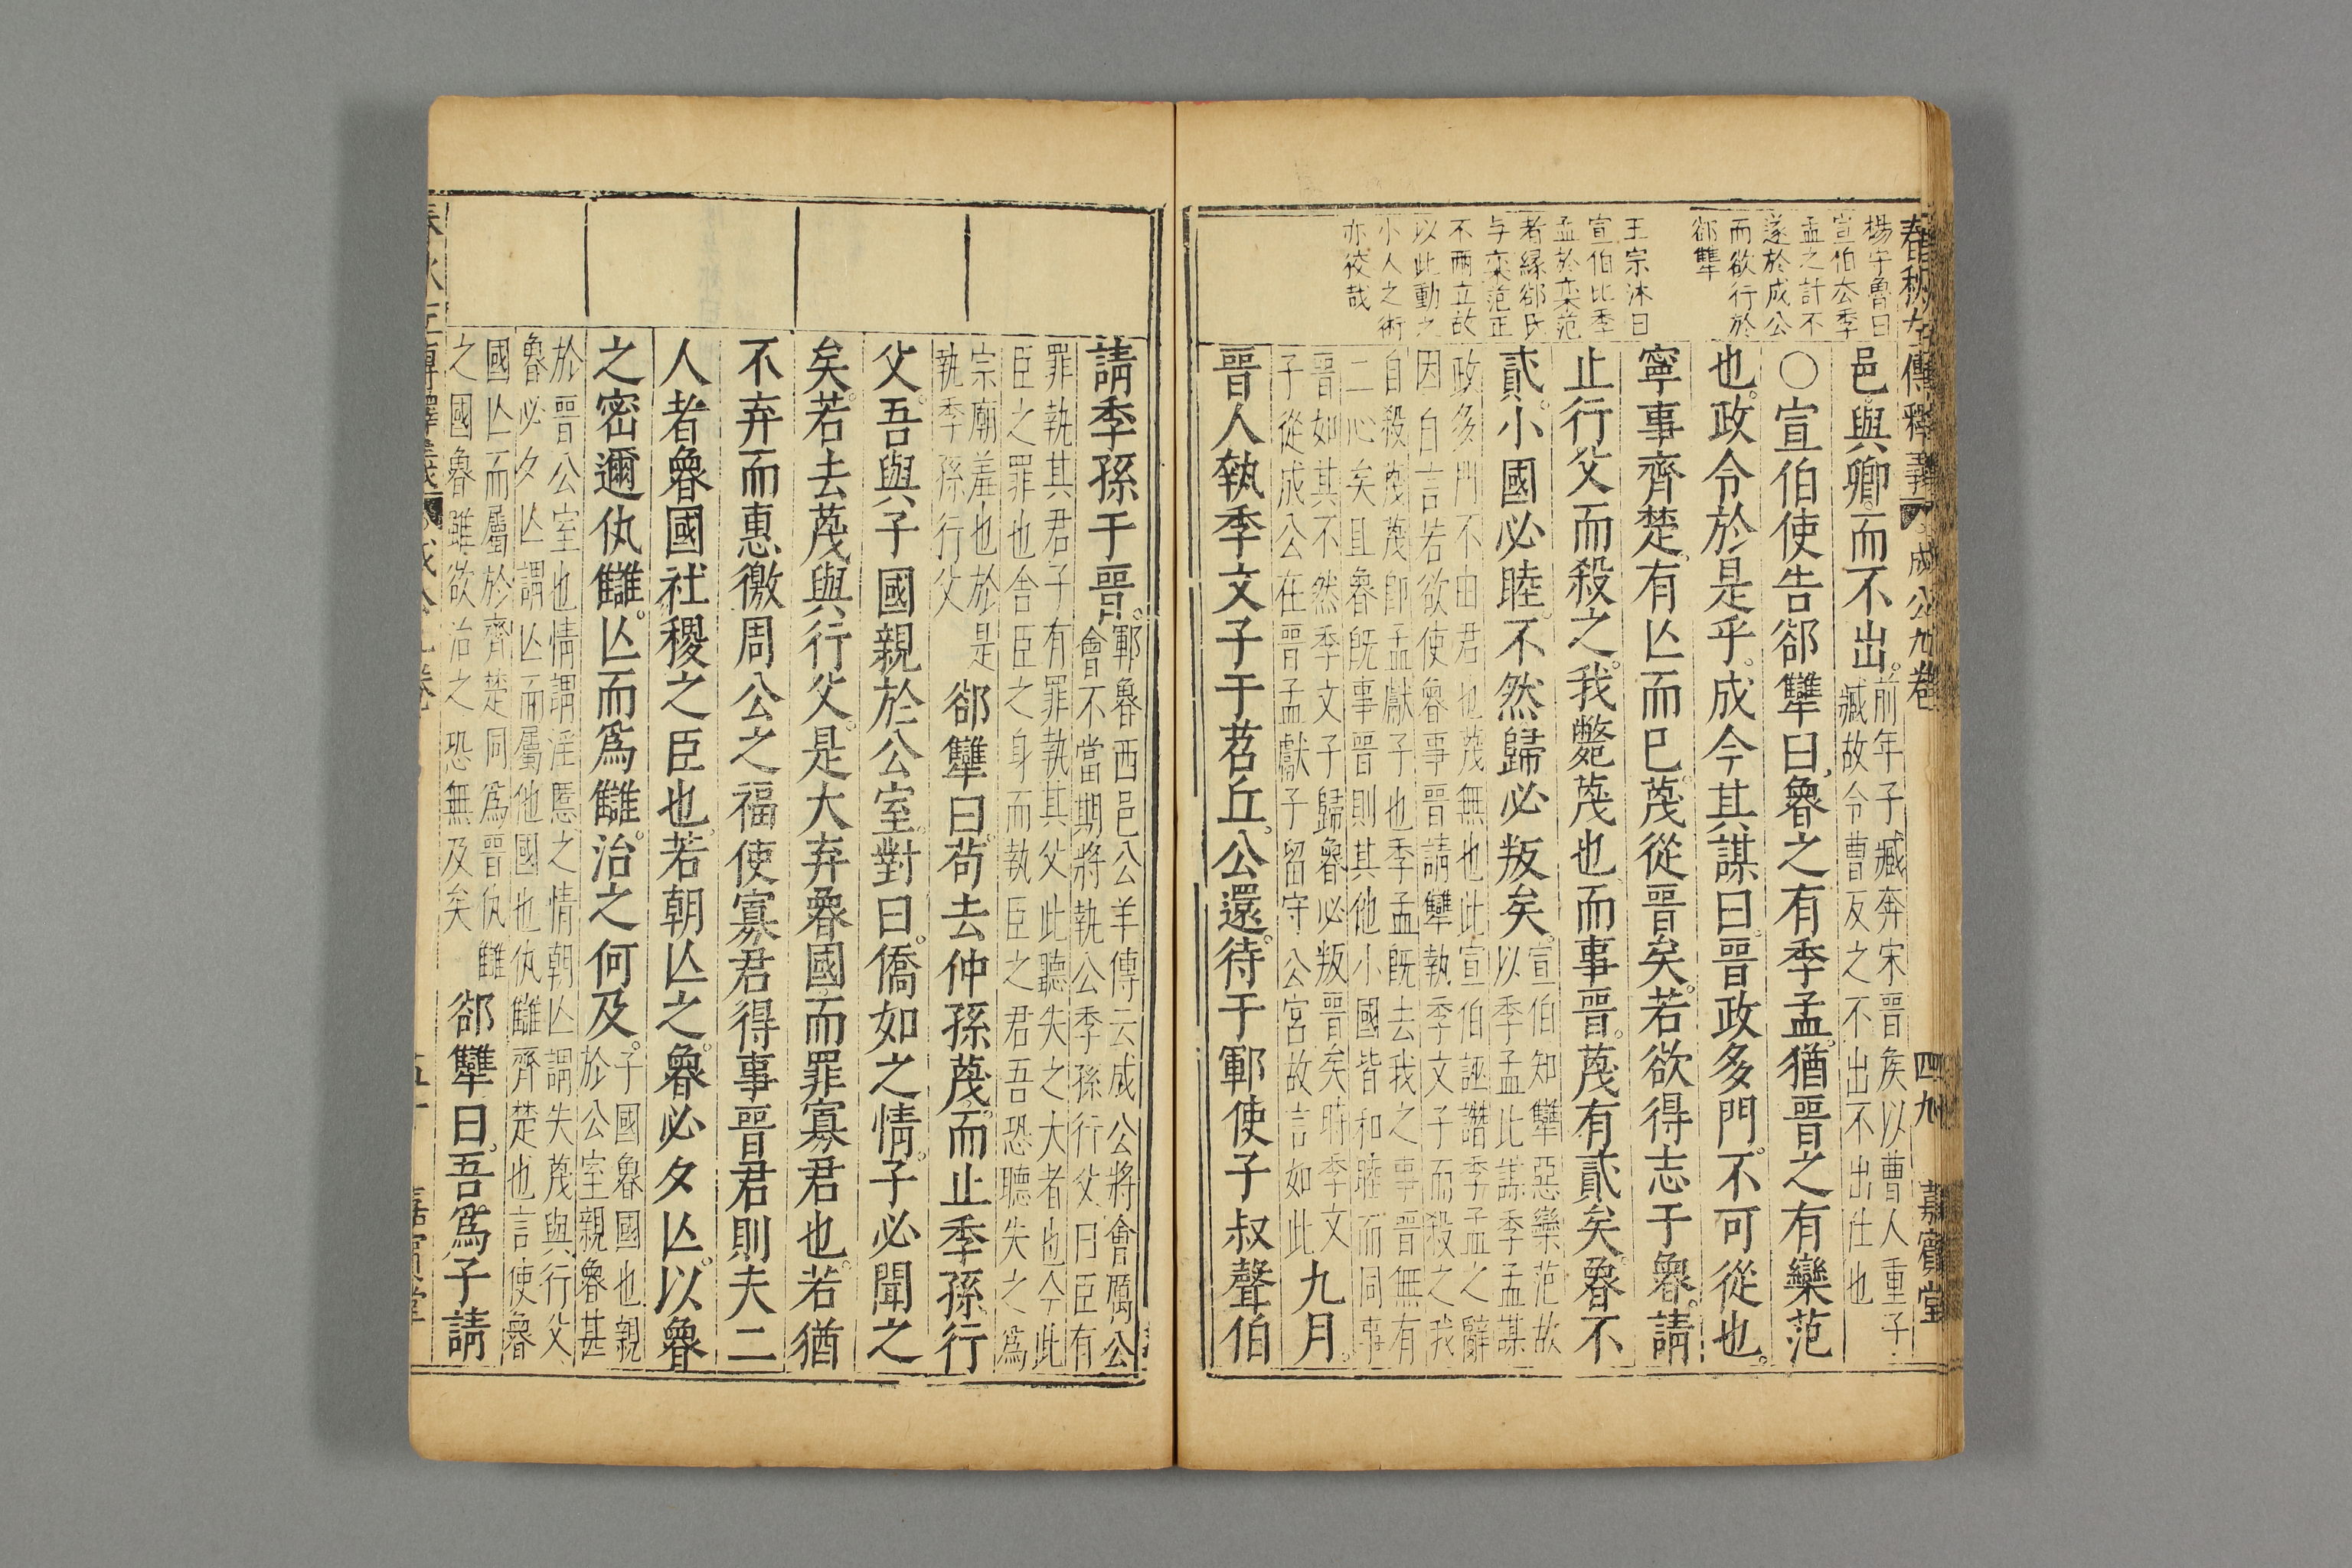 春秋左傳釋義 成公九卷 四九 嘉賓堂
楊守魯曰
宣伯去季
孟之計不
遂於成公
而欲行於
郤犨
王宗沐曰
宣伯比季
孟於欒范
者緣郤氏
与欒范正
不兩立故
以此動之
小人之術
亦狡哉
邑與卿而不出
前年子臧奔宋晉矦以曹人重子
臧故令曹反之不出不出仕也
〇宣伯使告郤犨曰魯之有季孟猶晉之有欒范
也政令於是乎成今其謀曰晉政多門不可從也
寧事齊楚有亾而巳蔑從晉矣若欲得志于魯請
止行父而殺之我斃蔑也而事晉蔑有貳矣魯不
貳小國必睦不然歸必叛矣
宣伯知犨惡欒范故
以季孟比謀季孟謀
政多門不由君也蔑無也此宣伯誣譖季孟之辭
因自言若欲使魯事晉請犨執季文子而殺之我
自殺蔑蔑即孟獻子也季孟既去我之事晉無有
二心矣且魯既事晉則其他小國皆和睦而同事
晉如其不然季文子歸魯必叛晉矣時季文
子從成公在晉孟獻子留守公宮故言如此
九月
晉人執季文子于苕丘公還待于鄆使子叔聲伯
請季孫于晉
鄆魯西邑公羊傳云成公將會厲公
會不當期將執公季孫行父曰臣有
罪執其君子有罪執其父此聽失之大者也今此
臣之罪也舍臣之身而執臣之君吾恐聽失之爲
宗廟羞也於是
執季孫行父
郤犨曰苟去仲孫蔑而止季孫行
父吾與子國親於公室對曰僑如之情子必聞之
矣若去蔑與行父是大弃魯國而罪寡君也若猶
不弃而惠徼周公之福使寡君得事晉君則夫二
人者魯國社稷之臣也若朝亾之魯必夕亾以魯
之密邇仇讎亾而爲讎治之何及
子國魯國也親
於公室親魯甚
於晉公室也情謂淫慝之情朝亾謂失蔑與行父
魯必夕亾謂亾而屬他國也仇讎齊楚也言使魯
國亾而屬於齊楚同爲晉仇讎
之國魯雖欲治之恐無及矣
郤犨曰吾爲子請